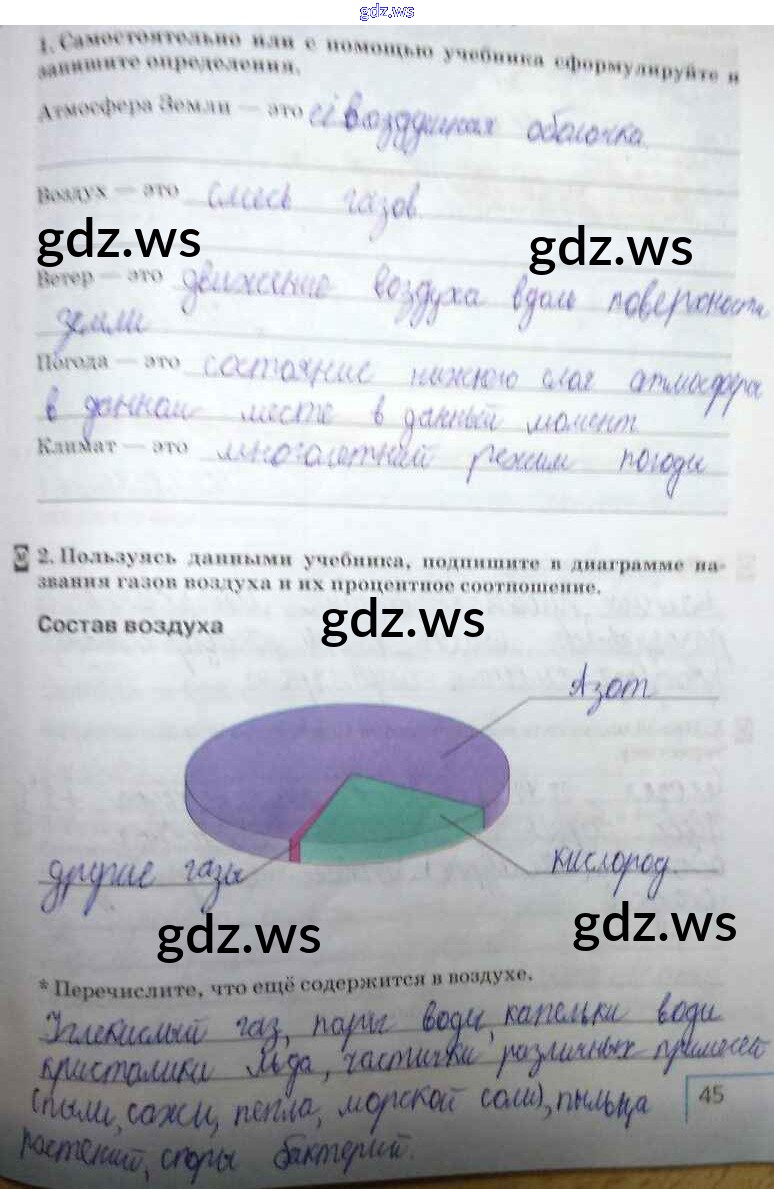 gdz.ws
1. Самостоятельно или с помощью учебника сформулируйте и
запишите определения.
Атмосфера Земли — это её воздушная оболочка.
Воздух — это смесь газов.
gdz.ws gdz.ws
Ветер — это движение воздуха вдоль поверхности
земли
Погода — это состояние нижнего слоя атмосферы
в данном месте в данный момент
Климат — это многолетний режим погоды
2. Пользуясь данными учебника, подпишите в диаграмме на-
звания газов воздуха и их процентное соотношение.
gdz.ws
Состав воздуха
Азот
другие газы
кислород.
gdz.ws gdz.ws
* Перечислите, что ещё содержится в воздухе.
Углекислый газ, пары воды, капельки воды
кристалики льда, частички различных примесей
(пыли, сажи, пепла, морской соли), пыльца
растений, споры бактерий.
45